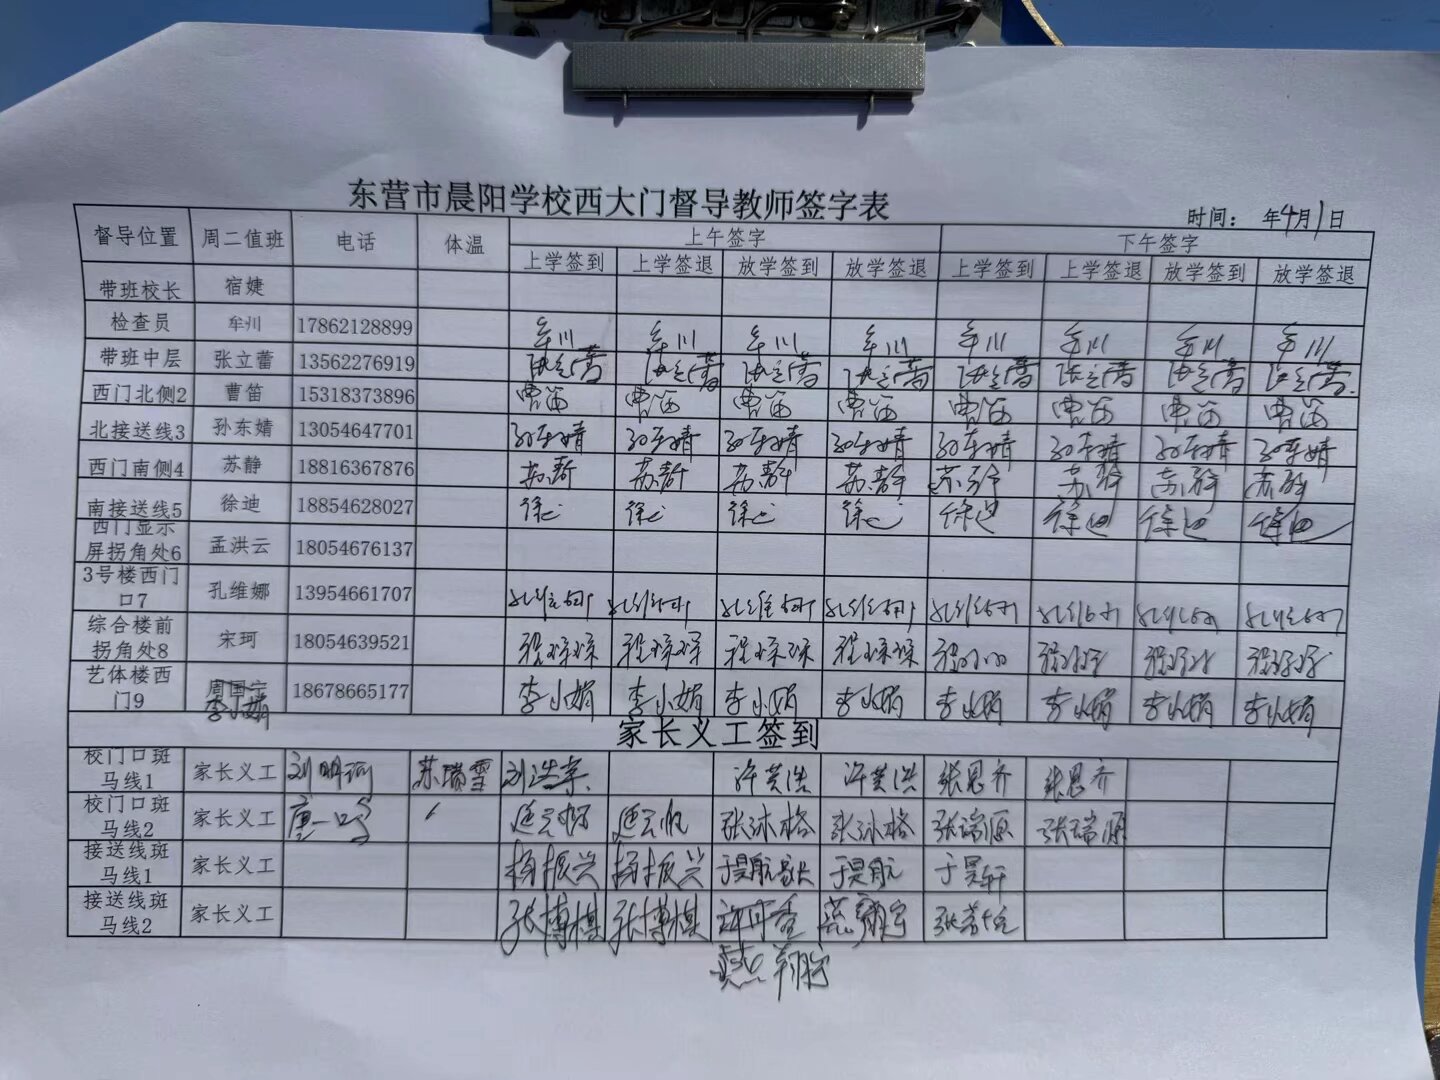 东营市晨阳学校西大门督导教师签字表
时间： 年4月1日
督导位置 周二值班 电话 体温 上午签字 下午签字
上学签到 上学签退 放学签到 放学签退 上学签到 上学签退 放学签到 放学签退
带班校长 宿婕
检查员 牟川 17862128899 牟川 牟川 牟川 牟川 牟川 牟川 牟川 牟川
带班中层 张立蕾 13562276919 张立蕾 张立蕾 张立蕾 张立蕾 张立蕾 张立蕾 张立蕾 张立蕾
西门北侧2 曹笛 15318373896 曹笛 曹笛 曹笛 曹笛 曹笛 曹笛 曹笛 曹笛
北接送线3 孙东婧 13054647701 孙东婧 孙东婧 孙东婧 孙东婧 孙东婧 孙东婧 孙东婧 孙东婧
西门南侧4 苏静 18816367876 苏静 苏静 苏静 苏静 苏静 苏静 苏静 苏静
南接送线5 徐迪 18854628027 徐迪 徐迪 徐迪 徐迪 徐迪 徐迪 徐迪 徐迪
西门显示
屏拐角处6 孟洪云 18054676137
3号楼西门
口7 孔维娜 13954661707 孔维娜 孔维娜 孔维娜 孔维娜 孔维娜 孔维娜 孔维娜 孔维娜
综合楼前
拐角处8 宋珂 18054639521
艺体楼西
门9 李小娟 18678665177 李小娟 李小娟 李小娟 李小娟 李小娟 李小娟 李小娟 李小娟
家长义工签到
校门口斑
马线1 家长义工 刘明珂 苏瑞雪 许英浩 许英浩 张恩齐 张恩齐
校门口斑
马线2 家长义工 唐一鸣 张沐格 张沐格 张瑞源 张瑞源
接送线斑
马线1 家长义工 杨振兴 杨振兴 于昊航家长 于昊航 于昊轩
接送线斑
马线2 家长义工 张博棋 张博棋
燕翔宇